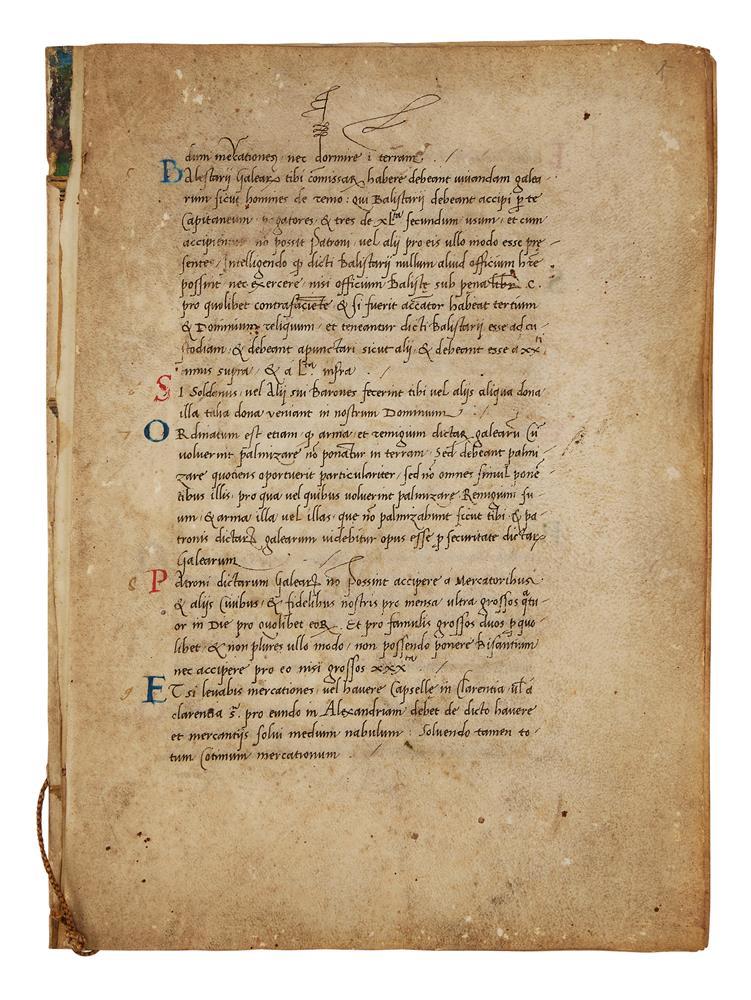 dum mercationes, nec dormire i terram.
Balestarij Galearꝝ tibi comissaꝝ habere debeant unandam galea
rum sicut homines de remo: qui Balistarij debeant accipi p te
Capitaneum, & tres de xL.ta secundum usum, et cum
no possit Patroni, vel alij pro eis ullo modo esse pre
sentes, Intelligendo q dicti Balistarij nullum aliud officium hre
possint, nec exercere, nisi officium Baliste sub pena libr. C.
pro quolibet contrafaciete & si fuerit accator habeat tertium
& Dominium reliquum, et teneantur dicti Balistarij esse ad cu
stodiam, & debeant apunctari sicut alij & debeant esse a xx
annis supra, & a L.ta infra.
SI Soldanus, vel Alij sui Barones fecerint tibi vel alijs aliqua dona
illa talia dona veniant in nostrum Dominium.
ORdinatum est etiam q arma et remigum dictaꝝ galearu Cu
voluerint palmizare no ponatur in terram, Sed debeant palmi
zare quociens oportuerit particulariter, sed no omnes simul pone
tibus illis, pro qua vel quibus voluerint palmizare Remigium su
um, & arma illa vel illas, que no palmizabunt sicut tibi & pa
tronis dictaꝝ galearum videbitur opus esse p securitate dictaꝝ
Galearum
8 PAtroni dictarum Galeaꝝ no possint accipere a Mercatoribus
& alijs Civibus, & fidelibus nostris pro mensa ultra grossos qtu
or in Die pro quolibet eoꝝ. Et pro famulis grossos duos p quo
libet, & non plures ullo modo, non possendo ponere Bisantium
nec accipere pro eo nisi grossos xxx.ta
9 ET si levabis mercationes, vel havere Capselle in Clarentia, ul a
clarentia s. pro eundo in Alexandriam debet de dicto havere
et mercantijs solui medium nabulum: Soluendo tamen to
tum Cotimum mercationum.